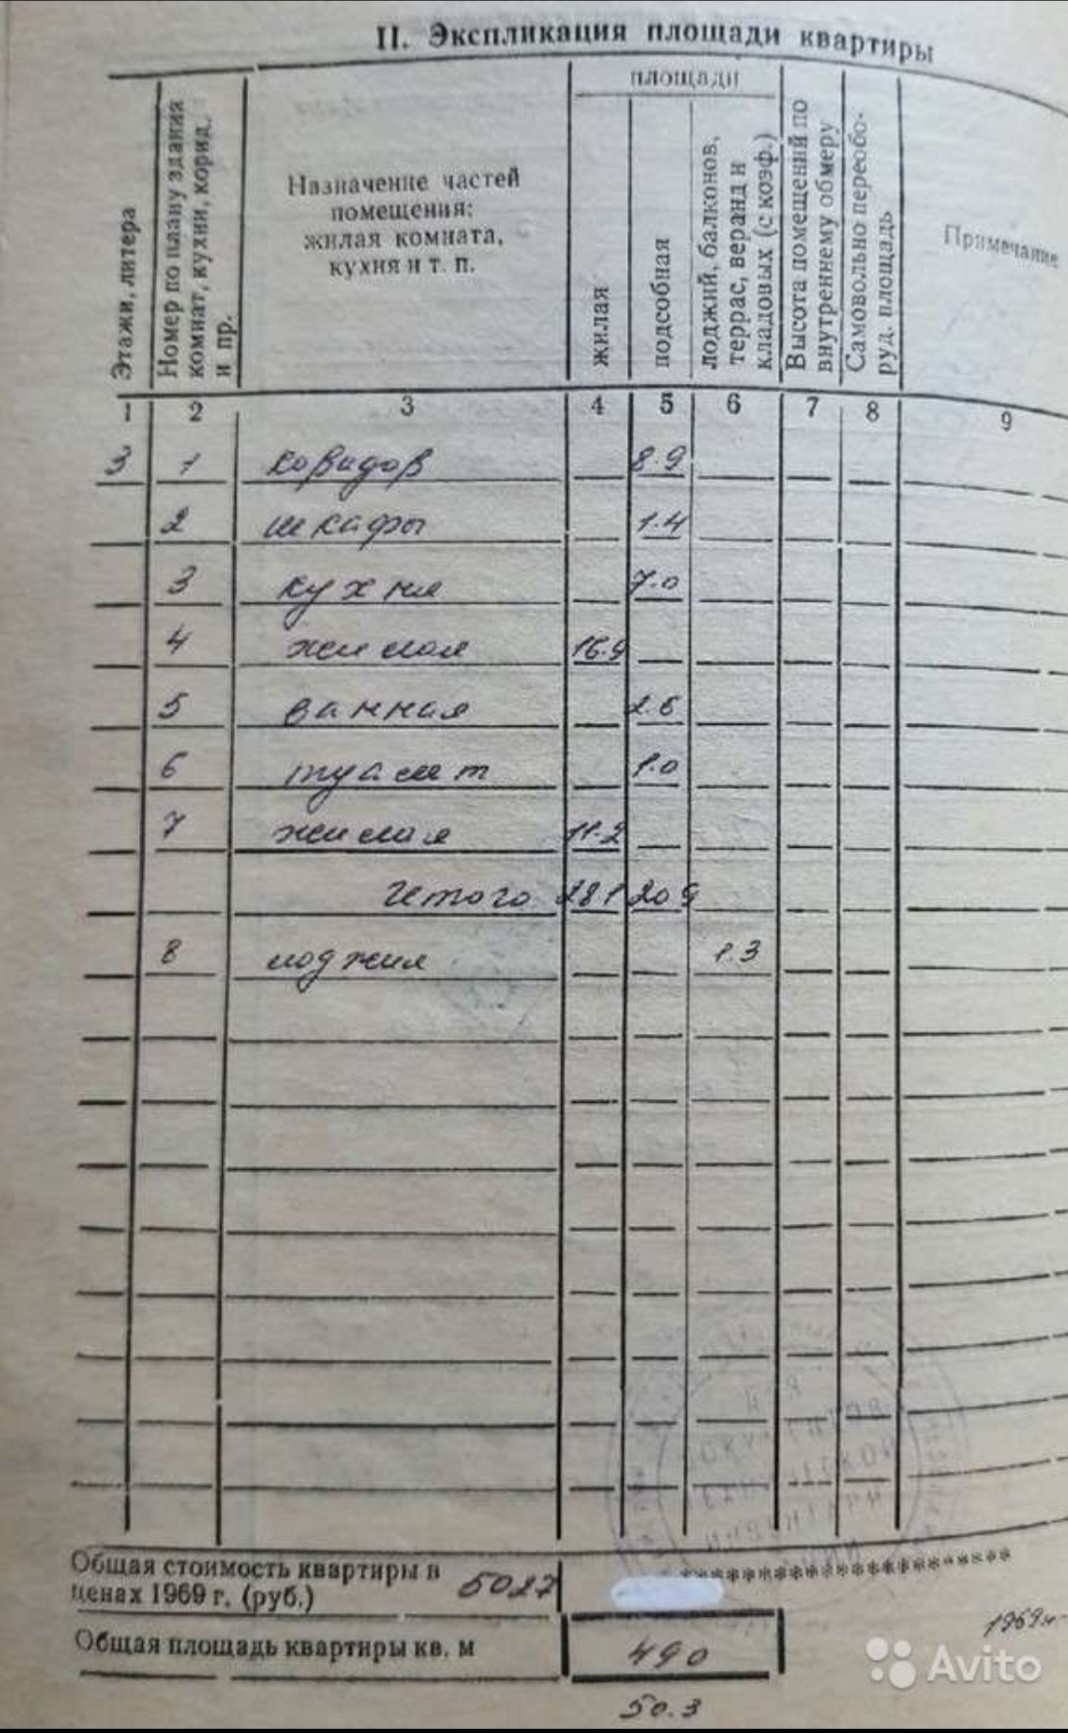 II. Экспликация площади квартиры
Этажи, литера
Номер по плану здания комнат, кухни, корид. и пр.
Назначение частей
помещения:
жилая комната,
кухня и т. п.
площади
жилая
подсобная
лоджий, балконов, террас, веранд и кладовых (с коэф.)
Высота помещений по внутреннему обмеру
Самовольно переобо-руд. площадь
Примечание
1 2 3 4 5 6 7 8 9
3 1 коридор 8.9
2 шкафы 1.4
3 кухня 7.0
4 жилая 16.9
5 ванная 2.6
6 туалет 1.0
7 жилая 11.2
Итого 28 1 20 9
8 лоджия 1.3
Общая стоимость квартиры в
ценах 1969 г. (руб.) 5027
*************************
Общая площадь квартиры кв. м 49 0
50.3
Avito